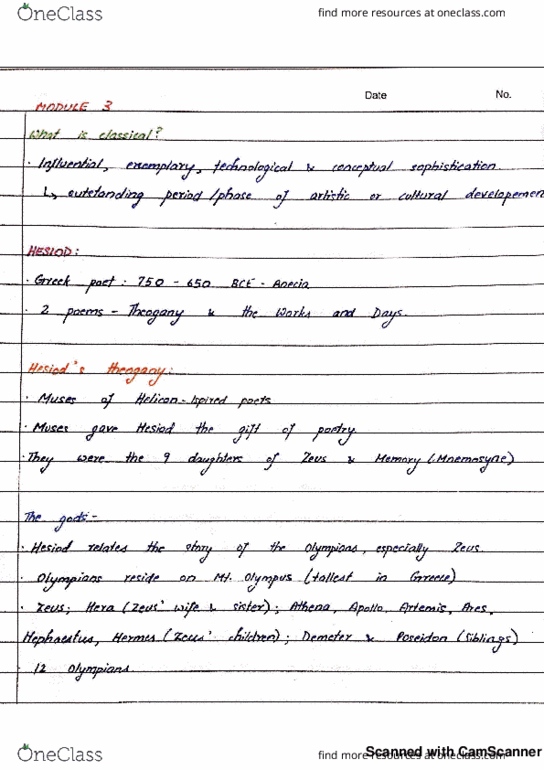 OneClass
find more resources at oneclass.com
Date No.
MODULE 3
What is classical?
· Influential, exemplary, technological & conceptual sophistication.
↳ outstanding period/phase of artistic or cultural developemen
HESIOD:
· Greek poet: 750 - 650 BCE - Anecia
· 2 poems - Theogany & the Works and Days.
Hesiod's theogany:
· Muses of Helicon - Ispired poets
· Muses gave Hesiod the gift of poetry
· They were the 9 daughters of Zeus & Memory (Mnemosyne)
The gods -
· Hesiod relates the story of the Olympians, especially Zeus.
· Olympians reside on Mt. Olympus (tallest in Greece)
· Zeus; Hera (Zeus' wife & sister); Athena, Apollo, Artemis, Ares,
Hephaestus, Hermes (Zeus' children); Demeter & Poseidon (siblings)
12 Olympians.
OneClass
find more resources at oneclass.com
Scanned with CamScanner